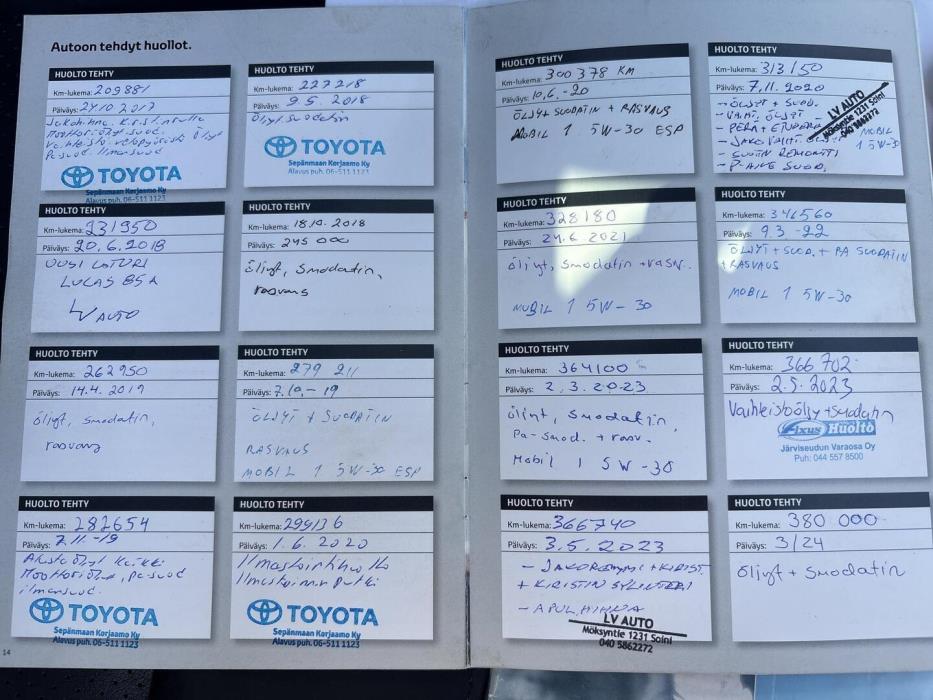 Autoon tehdyt huollot.
HUOLTO TEHTY
Km-lukema: 209881
Päiväys: 24.10 2017
Moottoriöljy suod.
TOYOTA
Sepänmaan Korjaamo Ky
Alavus puh. 06-511 1123
HUOLTO TEHTY
Km-lukema: 227218
Päiväys: 9.5. 2018
Öljyt suodatin
TOYOTA
Sepänmaan Korjaamo Ky
Alavus puh. 06-511 1123
HUOLTO TEHTY
Km-lukema: 231950
Päiväys: 20.6.2018
UUSI LATURI
LUCAS 85A
LV AUTO
HUOLTO TEHTY
Km-lukema: 18.10. 2018
Päiväys: 245 000
öljyt, Suodatin,
rasvaus
HUOLTO TEHTY
Km-lukema: 262950
Päiväys: 14.4. 2019
öljyt, Suodatin,
rasvaus
HUOLTO TEHTY
Km-lukema: 279 211
Päiväys: 7.10,-19
ÖLJYT + SUODATIN
RASVAUS
MOBIL 1 5W-30 ESP
HUOLTO TEHTY
Km-lukema: 282654
Päiväys: 7.11 -19
Moottoriöljy, pa suod
ilmansuod.
TOYOTA
Sepänmaan Korjaamo Ky
Alavus puh. 06-511 1123
HUOLTO TEHTY
Km-lukema: 299136
Päiväys: 1.6. 2020
Ilmastointihuolto
Ilmastoinnin putki
TOYOTA
Sepänmaan Korjaamo Ky
Alavus puh. 06-511 1123
14
HUOLTO TEHTY
Km-lukema: 300 378 KM
Päiväys: 10,6.-20
ÖLJYT+ SUODATIN + RASVAUS
MOBIL 1 5W-30 ESP
HUOLTO TEHTY
Km-lukema: 313150
Päiväys: 7.11. 2020
- ÖLJYT + SUOD.
- VAIHT. ÖLJYT
- PERÄ + ETUPERÄ
- JAKOVAIHT. ÖLJYT
- SUUTIN REMONTTI
- P-AINE SUOD.
MOBIL
1 5W-30
LV AUTO
Möksyntie 1231 Soini
040 5862272
HUOLTO TEHTY
Km-lukema: 328180
Päiväys: 24.6. 2021
öljyt, Suodatin +rasv.
MOBIL 1 5W-30
HUOLTO TEHTY
Km-lukema: 346560
Päiväys: 9.3 -22
ÖLJYT + SUOD. + PA SUODATIN
+ RASVAUS
MOBIL 1 5W-30
HUOLTO TEHTY
Km-lukema: 364100
Päiväys: 2.3.2023
öljyt, Suodatin,
Pa-suod. + rasv.
Mobil 1 5W-30
HUOLTO TEHTY
Km-lukema: 366 702
Päiväys: 2.5.2023
Vaihteistoöljy +suodatin
Fixus Huolto
Järviseudun Varaosa Oy
Puh: 044 557 8500
HUOLTO TEHTY
Km-lukema: 366740
Päiväys: 3.5.2023
- JAKOREMMI + KIRIST.
+ KIRISTIN SYLINTERI
- APUL. HIHNA
LV AUTO
Möksyntie 1231 Soini
040 5862272
HUOLTO TEHTY
Km-lukema: 380 000
Päiväys: 3/24
Öljyt + Suodatin